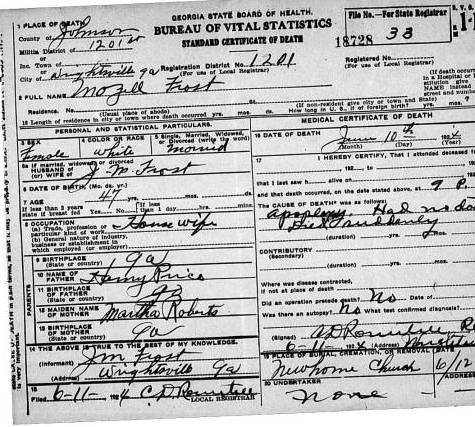 GEORGIA STATE BOARD OF HEALTH.
BUREAU OF VITAL STATISTICS
STANDARD CERTIFICATE OF DEATH
File No.—For State Registrar
18728 33
1 PLACE OF DEATH
County of Johnson
Militia District of 1201st
Inc. Town of
City of Wrightsville Ga
Registration District No. 1201
(For use of Local Registrar)
Registered No.
(For Use of Local Registrar)
(If death occurred
in a Hospital or
NAME instead
street and number
2 FULL NAME Frost
Residence. No. (Usual place of abode)
(If non-resident give city or town and State)
Length of residence in city or town where death occurred yrs. mos. ds. How long in U. S., if of foreign birth? yrs. mos.
PERSONAL AND STATISTICAL PARTICULARS.
3 SEX Female
4 COLOR OR RACE White
5 Single, Married, Widowed, or Divorced (write the word) Married
5a If married, widowed, or divorced
HUSBAND of
WIFE of J. M. Frost
6 DATE OF BIRTH (Mo. da. yr.)
7 AGE 47
If less than 2 years state if breast fed Yes No If less than 1 day hrs. min.
yrs. mos. ds.
8 OCCUPATION
(a) Trade, profession or particular kind of work House wife
(b) General nature of industry, business or establishment in which employed (or employer)
9 BIRTHPLACE (State or country) Ga
PARENTS
10 NAME OF FATHER
11 BIRTHPLACE OF FATHER (State or country) Ga
12 MAIDEN NAME OF MOTHER Martha Roberts
13 BIRTHPLACE OF MOTHER (State or country) Ga
14 THE ABOVE IS TRUE TO THE BEST OF MY KNOWLEDGE.
(Informant) J M Frost
(Address) Wrightsville Ga
15 Filed 6-11- 1924
LOCAL REGISTRAR
MEDICAL CERTIFICATE OF DEATH
16 DATE OF DEATH June 10th 192
(Month) (Day) (Year)
17 I HEREBY CERTIFY, That I attended deceased
that I last saw alive on 192
and that death occurred, on the date stated above, at 9 P.
The CAUSE OF DEATH* was as follows:
apoplexy. Had no
Died suddenly
(duration) yrs. mos.
CONTRIBUTORY
(Secondary)
(duration) yrs. mos.
Where was disease contracted,
if not at place of death?
Did an operation precede death? No Date of
Was there an autopsy? No What test confirmed diagnosis?
(Signed)
6-11- 192 (Address)
19 PLACE OF BURIAL, CREMATION, OR REMOVAL DATE
Newhome Church 6/12
20 UNDERTAKER None
ADDRESS